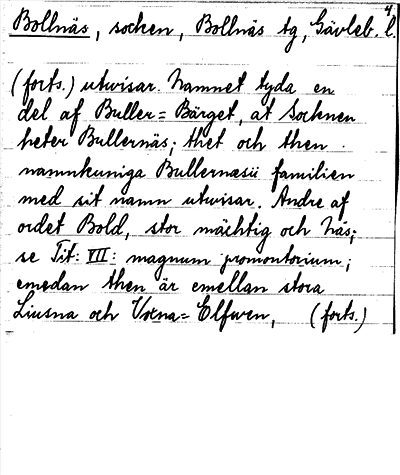 4
Bollnäs, socken, Bollnäs tg, Gävleb. l.
(forts.) utwisar. Namnet tyda en
del af Buller = Bärget, at Socknen
heter Bullernäs; thet och then
namnkuniga Bullernæsii familien
med sit namn utwisar. Andre af
ordet Bold, stor mächtig och Näs;
se Tit: VII: magnum promontorium;
emedan then är emellan stora
Liusna och Voxna = Elfwen, (forts.)